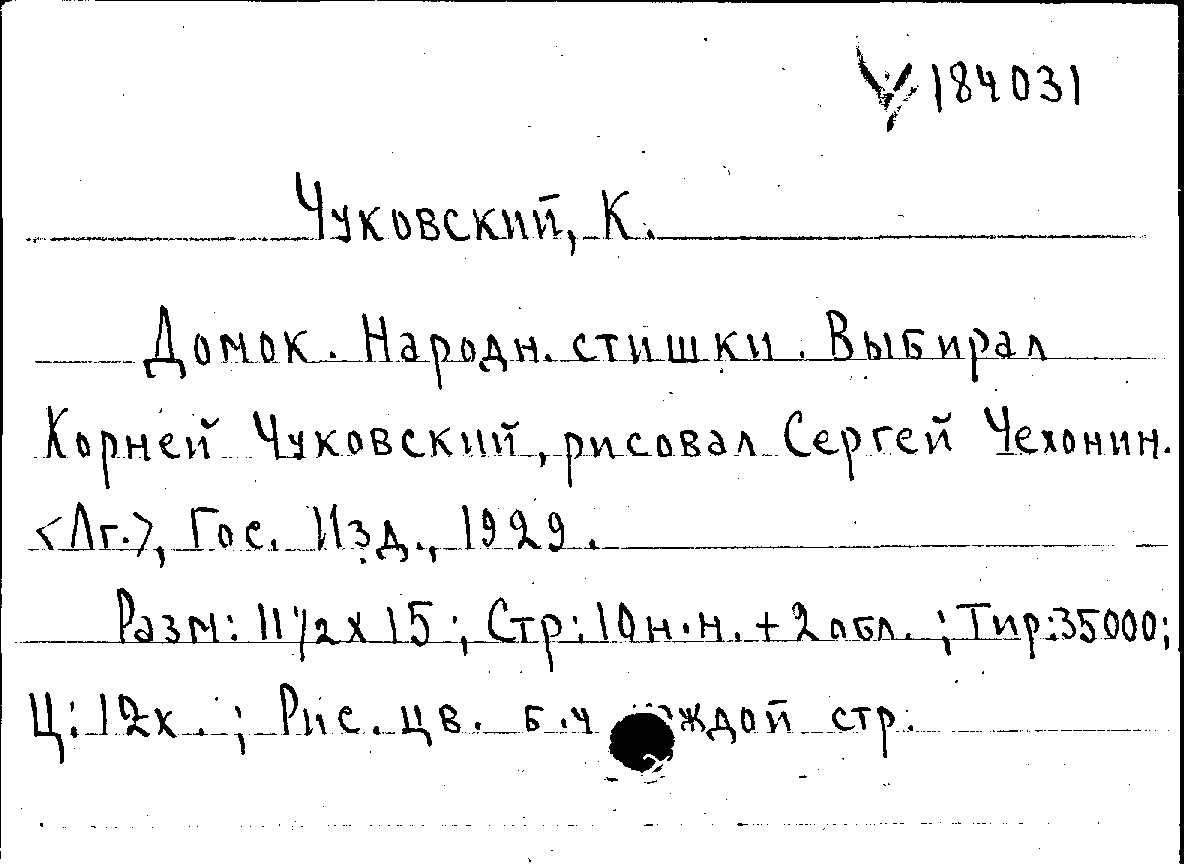 V 184031
Чуковский, К.
Домок. Народн. стишки. Выбирал
Корней Чуковский, рисовал Сергей Чехонин.
<Лг.>, Гос. Изд., 1929.
Разм: 11 1/2 х 15; Стр: 10 н.н. + 2 обл.; Тир: 35000;
Ц: 12к.; Рис. цв. стр.